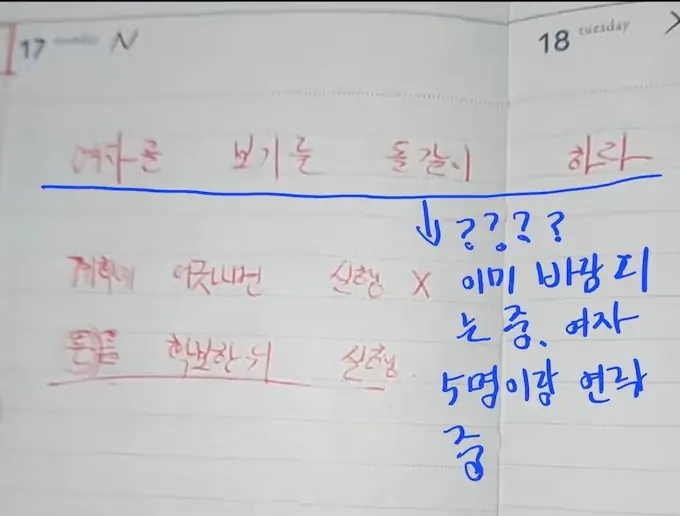 17 N
18 tuesday
여자를 보기를 돌같이 하라
↓ ????
계획에 어긋나면 실행 X
이미 바람 피
는 중. 여자
확보한뒤 실행
5명이랑 연락
중